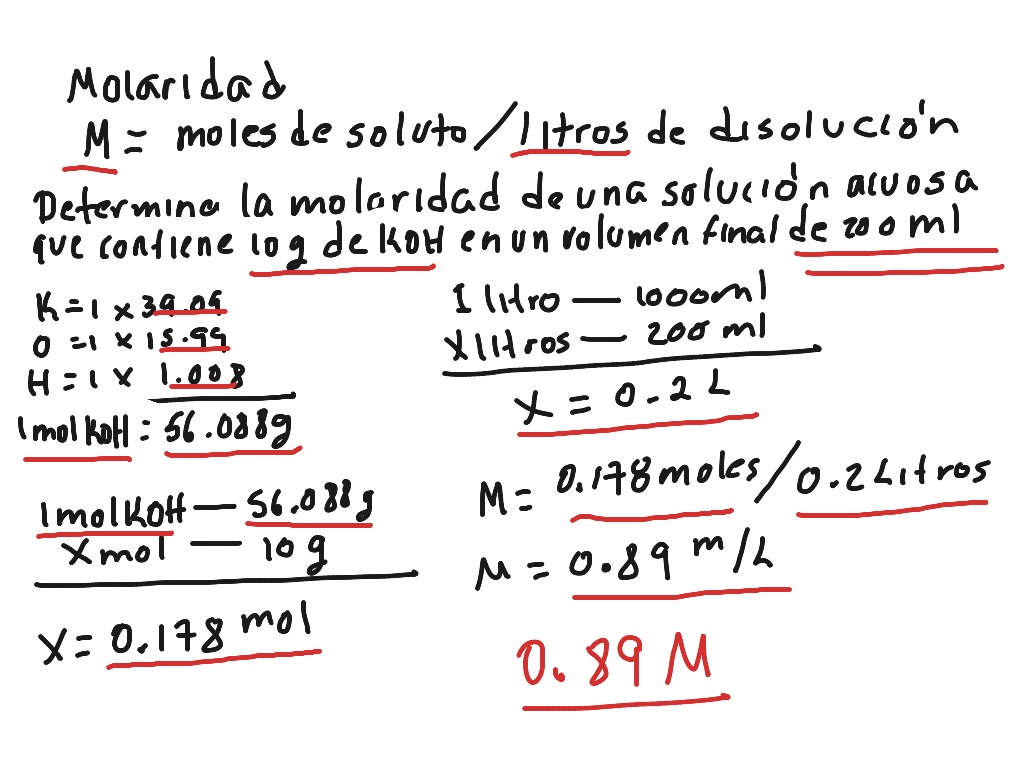 Molaridad
M = moles de soluto / litros de disolución
Determina la molaridad de una solución acuosa
que contiene 10 g de KOH en un volumen final de 200 ml
K = 1 x 39.09
O = 1 x 15.99
H = 1 x 1.008
1 mol KOH = 56.088g
1 mol KOH — 56.088g
X mol — 10 g
X = 0.178 mol
1 litro — 1000ml
X litros — 200 ml
X = 0.2 L
M = 0.178 moles / 0.2 Litros
M = 0.89 m/L
0.89 M